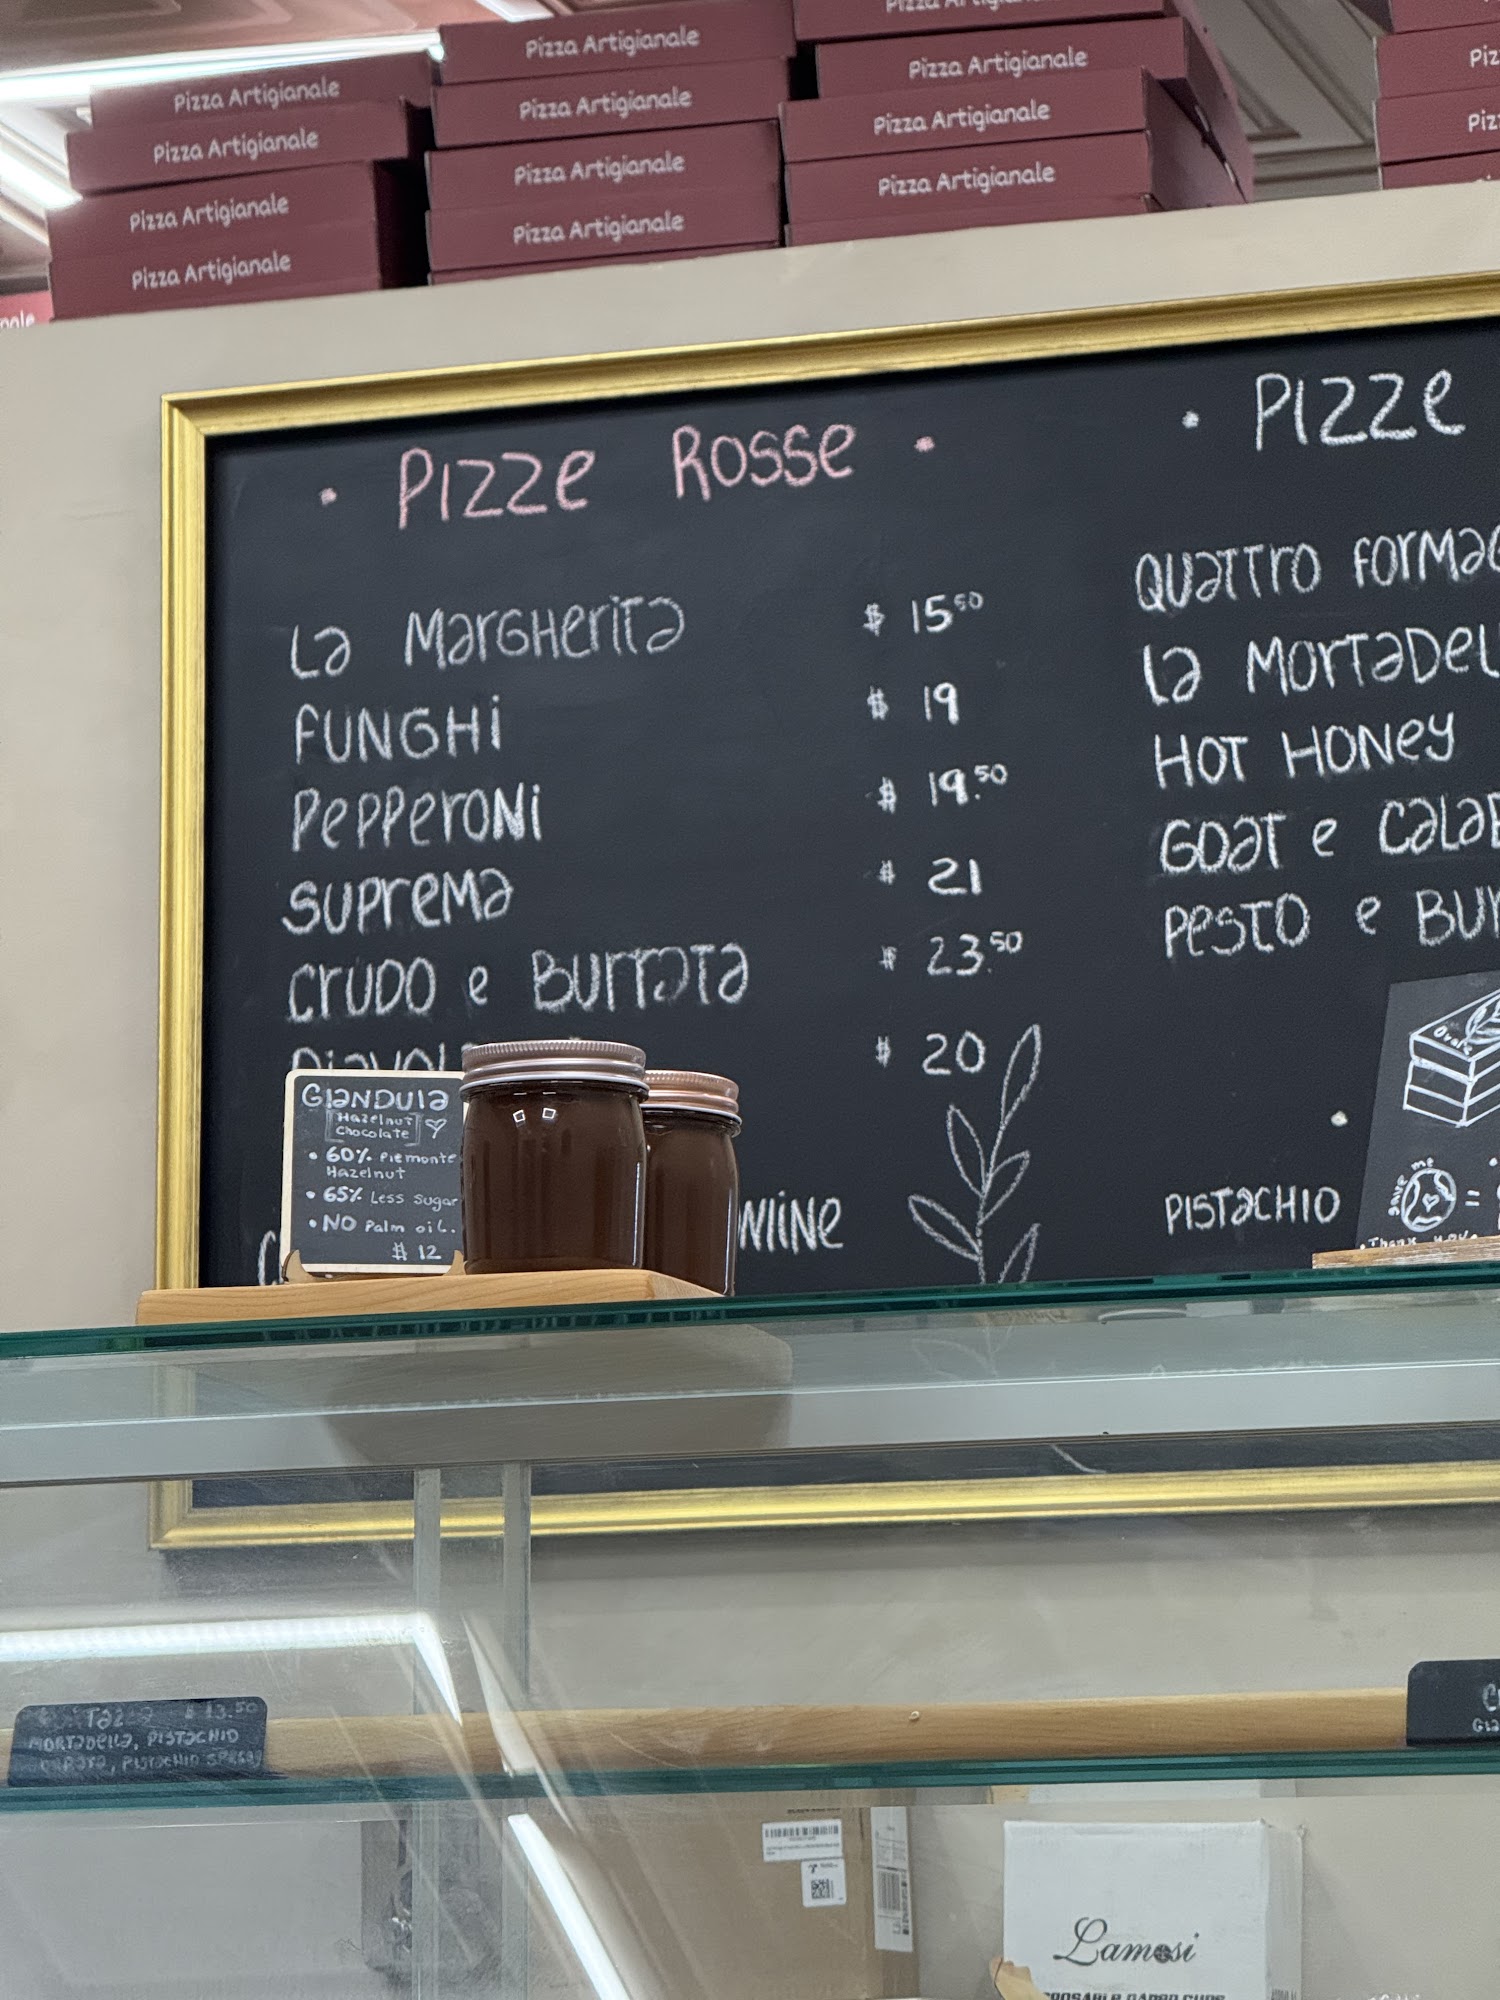 Pizza Artigianale
Pizza Artigianale
Pizza Artigianale
Pizza Artigianale
Pizza Artigianale
Pizza Artigianale
Pizza Artigianale
Pizza Artigianale
Pizza
Pizza Artigianale
Pizza Artigianale
Pizza Artigianale
• PIZZE ROSSE •
La MarGHerita $ 15 50
FUNGHi $ 19
PePPeroNi $ 19.50
SUPreMa $ 21
CrUDO e BUrrata $ 23.50
$ 20
• PIZZe
QUaTTrO
La
HOT HONey
GOaT e
PesTO e
PISTaCHIO
GIaNDUIa
Hazelnut
Chocolate
• 60% Piemonte
Hazelnut
• 65% Less Sugar
• NO Palm oil.
$ 12
save me
=
$ 13.50
MORTaDeLLa, PISTaCHIO
Lamosi